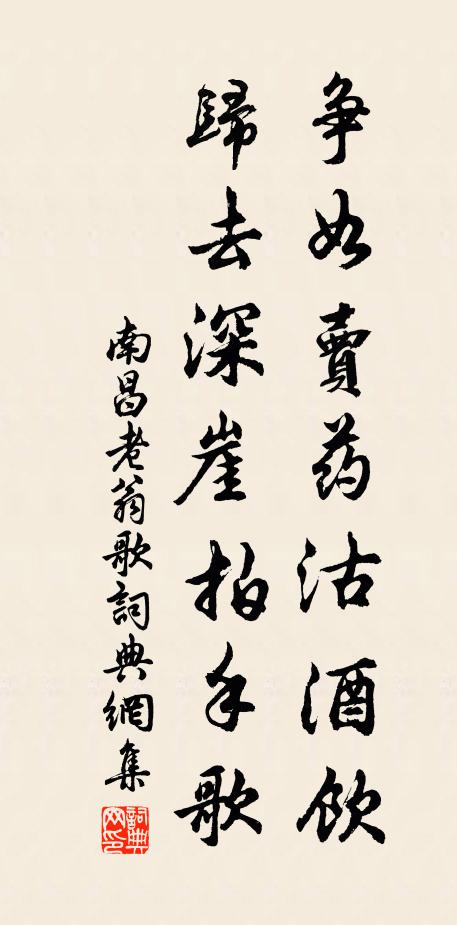 争如賣药沽酒飲
歸去深崖拍手歌
南昌老翁歌詞典網集
詞典网印